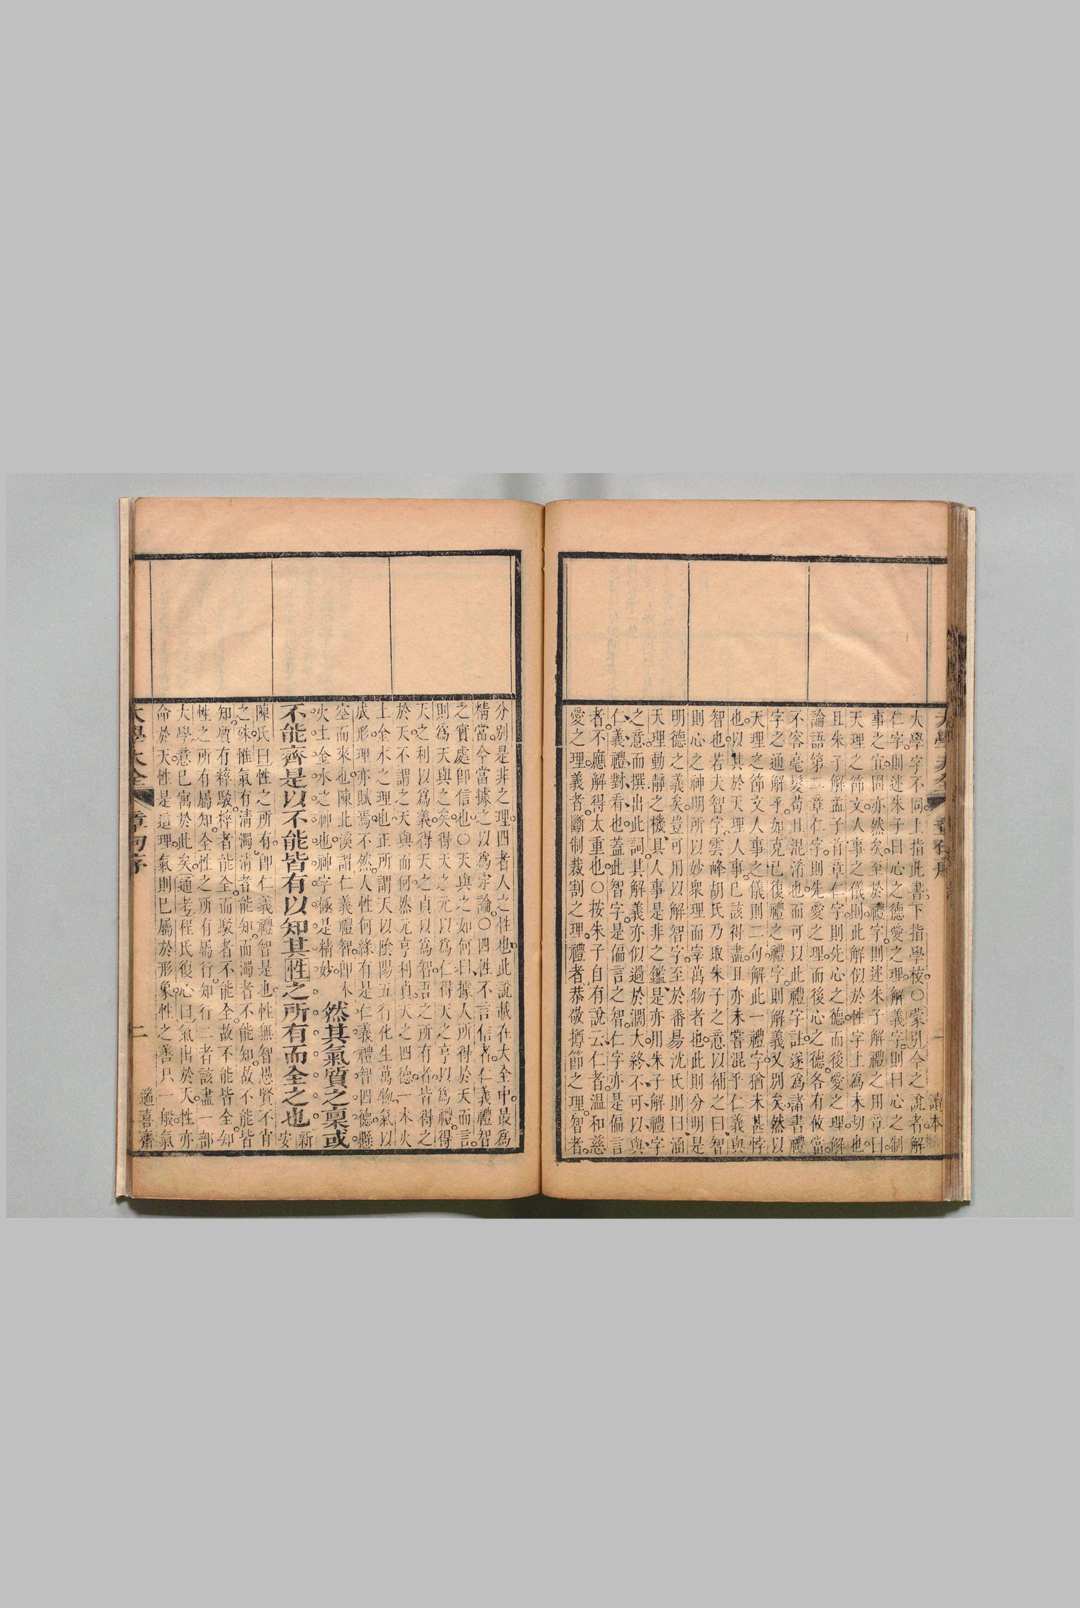 大學字不同上指此書下指學校○蒙引今之說者解
仁字則述朱子曰心之德愛之理解義字則曰心之制
事之宜固亦然矣至於禮字則述朱子解禮之用章曰
天理之節文人事之儀則此解似於性字上為未切也
且朱子解孟子首章仁字則先心之德而後愛之理解
論語第二章仁字則先愛之理而後心之德各有攸當
不容毫髮苟且混淆也而可以此禮字註遂為諸書禮
字之通解乎如克已復禮之禮字則解義又別矣然以
天理之節文人事之儀則二句解此一禮字猶未甚悖
也以其於天理人事已該得盡且亦未嘗混乎仁義與
智也若夫智字雲峰胡氏乃取朱子之意以補之曰智
則心之神明所以妙衆理而宰萬物者也此則分明是
明德之義矣豈可用以解智字至於番昜沈氏則曰涵
天理動靜之機具人事是非之鑑是亦用朱子解禮字
之意而撰出此詞其解義亦似過於濶大終不可以與
仁義禮對看也蓋此智字是偏言之智仁字亦是偏言
者不應解得太重也○按朱子自有說云仁者温和慈
愛之理義者斷制裁割之理禮者恭敬撙節之理智者
分別是非之理四者人之性也此說載在大全中最為
精當今當據之以為定論○四性不言信者仁義禮智
之實處即信也○天與之如何曰據人所得於天而言
則為天與之矣得天之元以為仁得天之亨以為禮得
天之利以為義得天之貞以為智吾之所有者皆得之
於天不謂之天與而何然元亨利貞天之四德一木火
土金水之理也正所謂天以陰陽五行化生萬物氣以
成形理亦賦焉不然人性何緣有是仁義禮智四德懸
空而來也陳北溪謂仁義禮智即木
火土金水之神也神字極是精妙
然其氣質之禀或
不能齊是以不能皆有以知其性之所有而全之也
新安
陳氏曰性之所有即仁義禮智是也性無智愚賢不肖
之殊惟氣有清濁清者能知而濁者不能知故不能皆
知質有粹駁粹者能全而駁者不能全故不能皆全知
性之所有屬知全性之所有屬行知行二者該盡一部
大學意已寓於此矣通考程氏復心曰氣出於天性亦
命於天性是這理氣則已屬於形象性之善只一般氣
大學大全
章句序
二
適喜齋